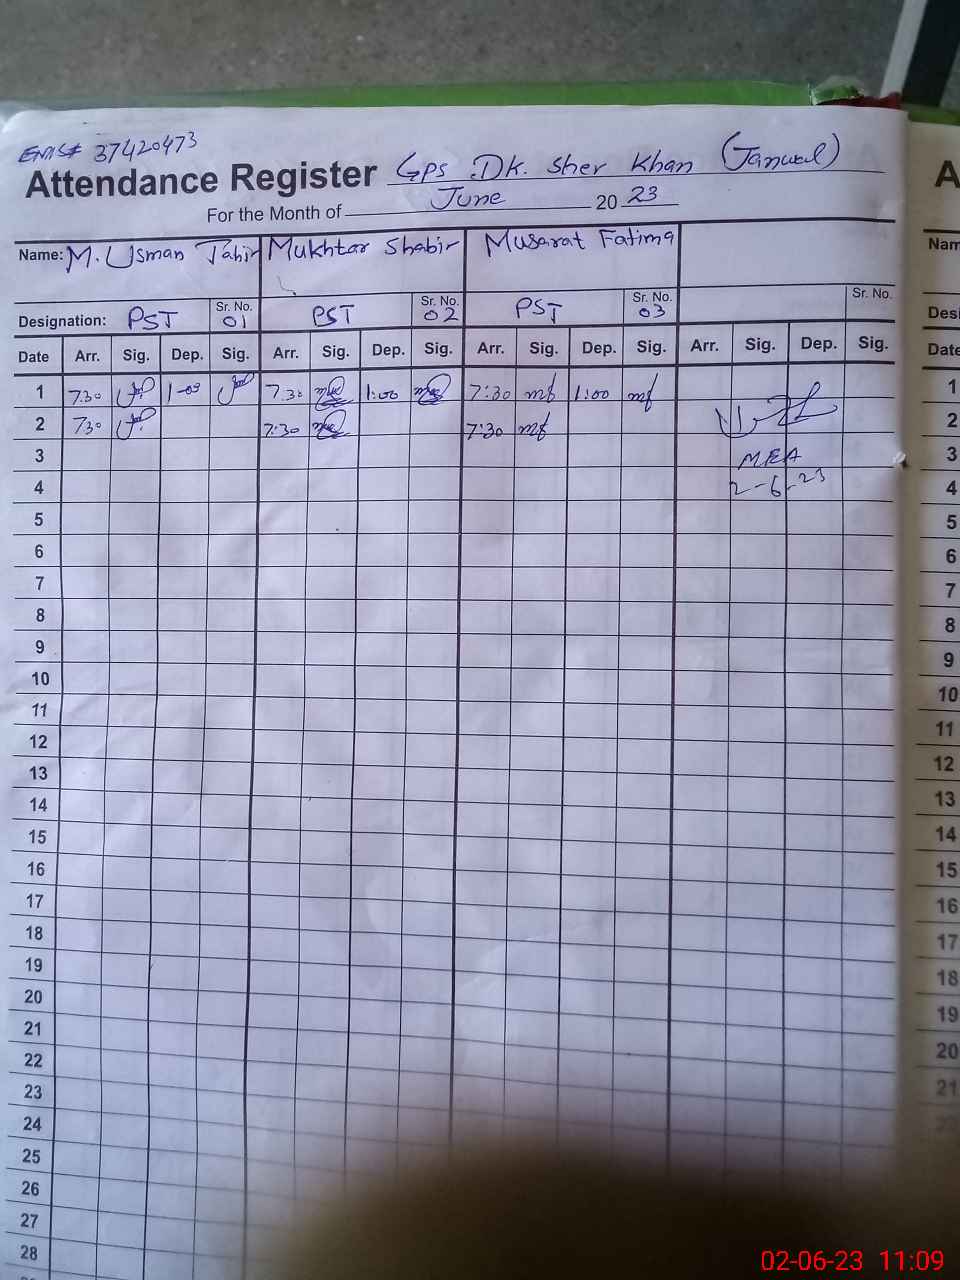 EMIS# 37420473
Attendance Register GPS .DK. Sher Khan (Janwal)
For the Month of June 20 23
Name: M. Usman Tahir Mukhtar Shabir Musarat Fatima
Designation: PST Sr. No. 01 PST Sr. No. 02 PST Sr. No. 03 Sr. No.
Date Arr. Sig. Dep. Sig. Arr. Sig. Dep. Sig. Arr. Sig. Dep. Sig. Arr. Sig. Dep. Sig.
1 7.30 1-00 7.30 1:00 7:30 mf 1:00 mf
2 7.30 7:30 7:30 mf
3 MEA
4 2-6-23
5
6
7
8
9
10
11
12
13
14
15
16
17
18
19
20
21
22
23
24
25
26
27
28
A
Nam
Desi
Date
1
2
3
4
5
6
7
8
9
10
11
12
13
14
15
16
17
18
19
20
21
02-06-23 11:09